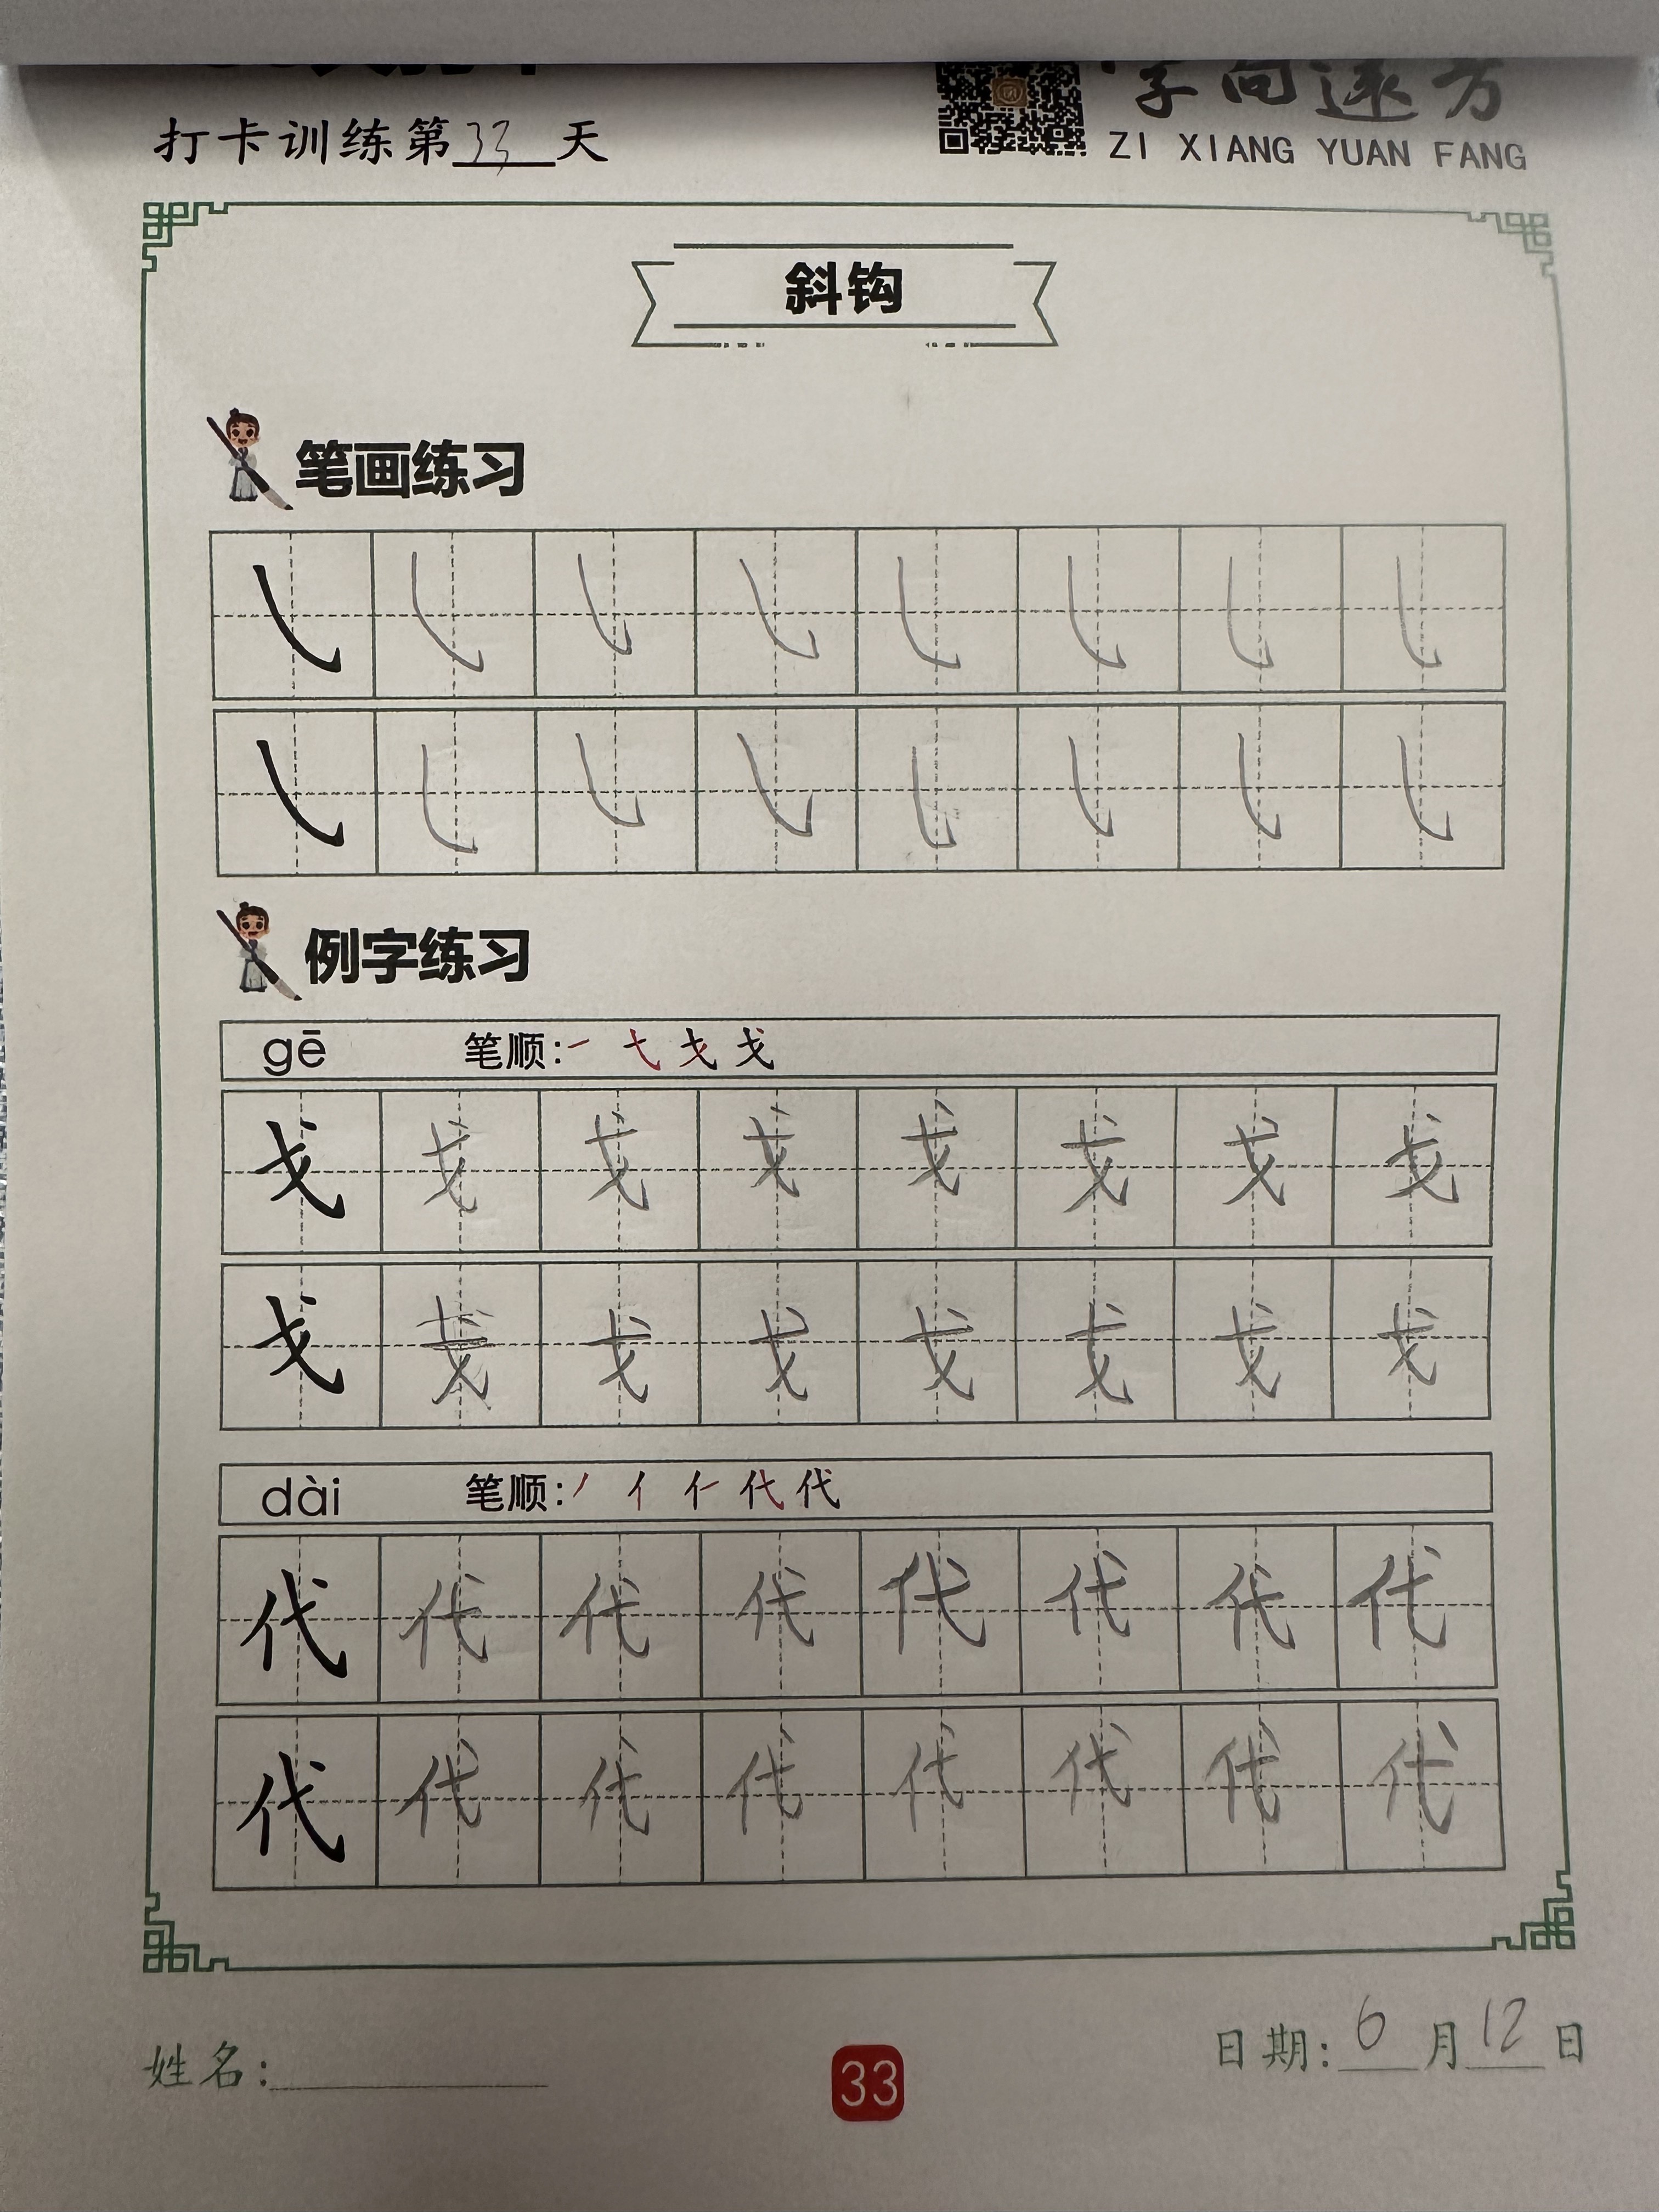 打卡训练第33天
字向远方
ZI XIANG YUAN FANG
斜钩
笔画练习
㇂ ㇂ ㇂ ㇂ ㇂ ㇂ ㇂ ㇂
㇂ ㇂ ㇂ ㇂ ㇂ ㇂ ㇂ ㇂
例字练习
gē 笔顺:一 弋 戈 戈
戈 戈 戈 戈 戈 戈 戈 戈
戈 戈 戈 戈 戈 戈 戈 戈
dài 笔顺:丿 亻 仁 代 代
代 代 代 代 代 代 代 代
代 代 代 代 代 代 代 代
姓名:
33
日期:6月12日